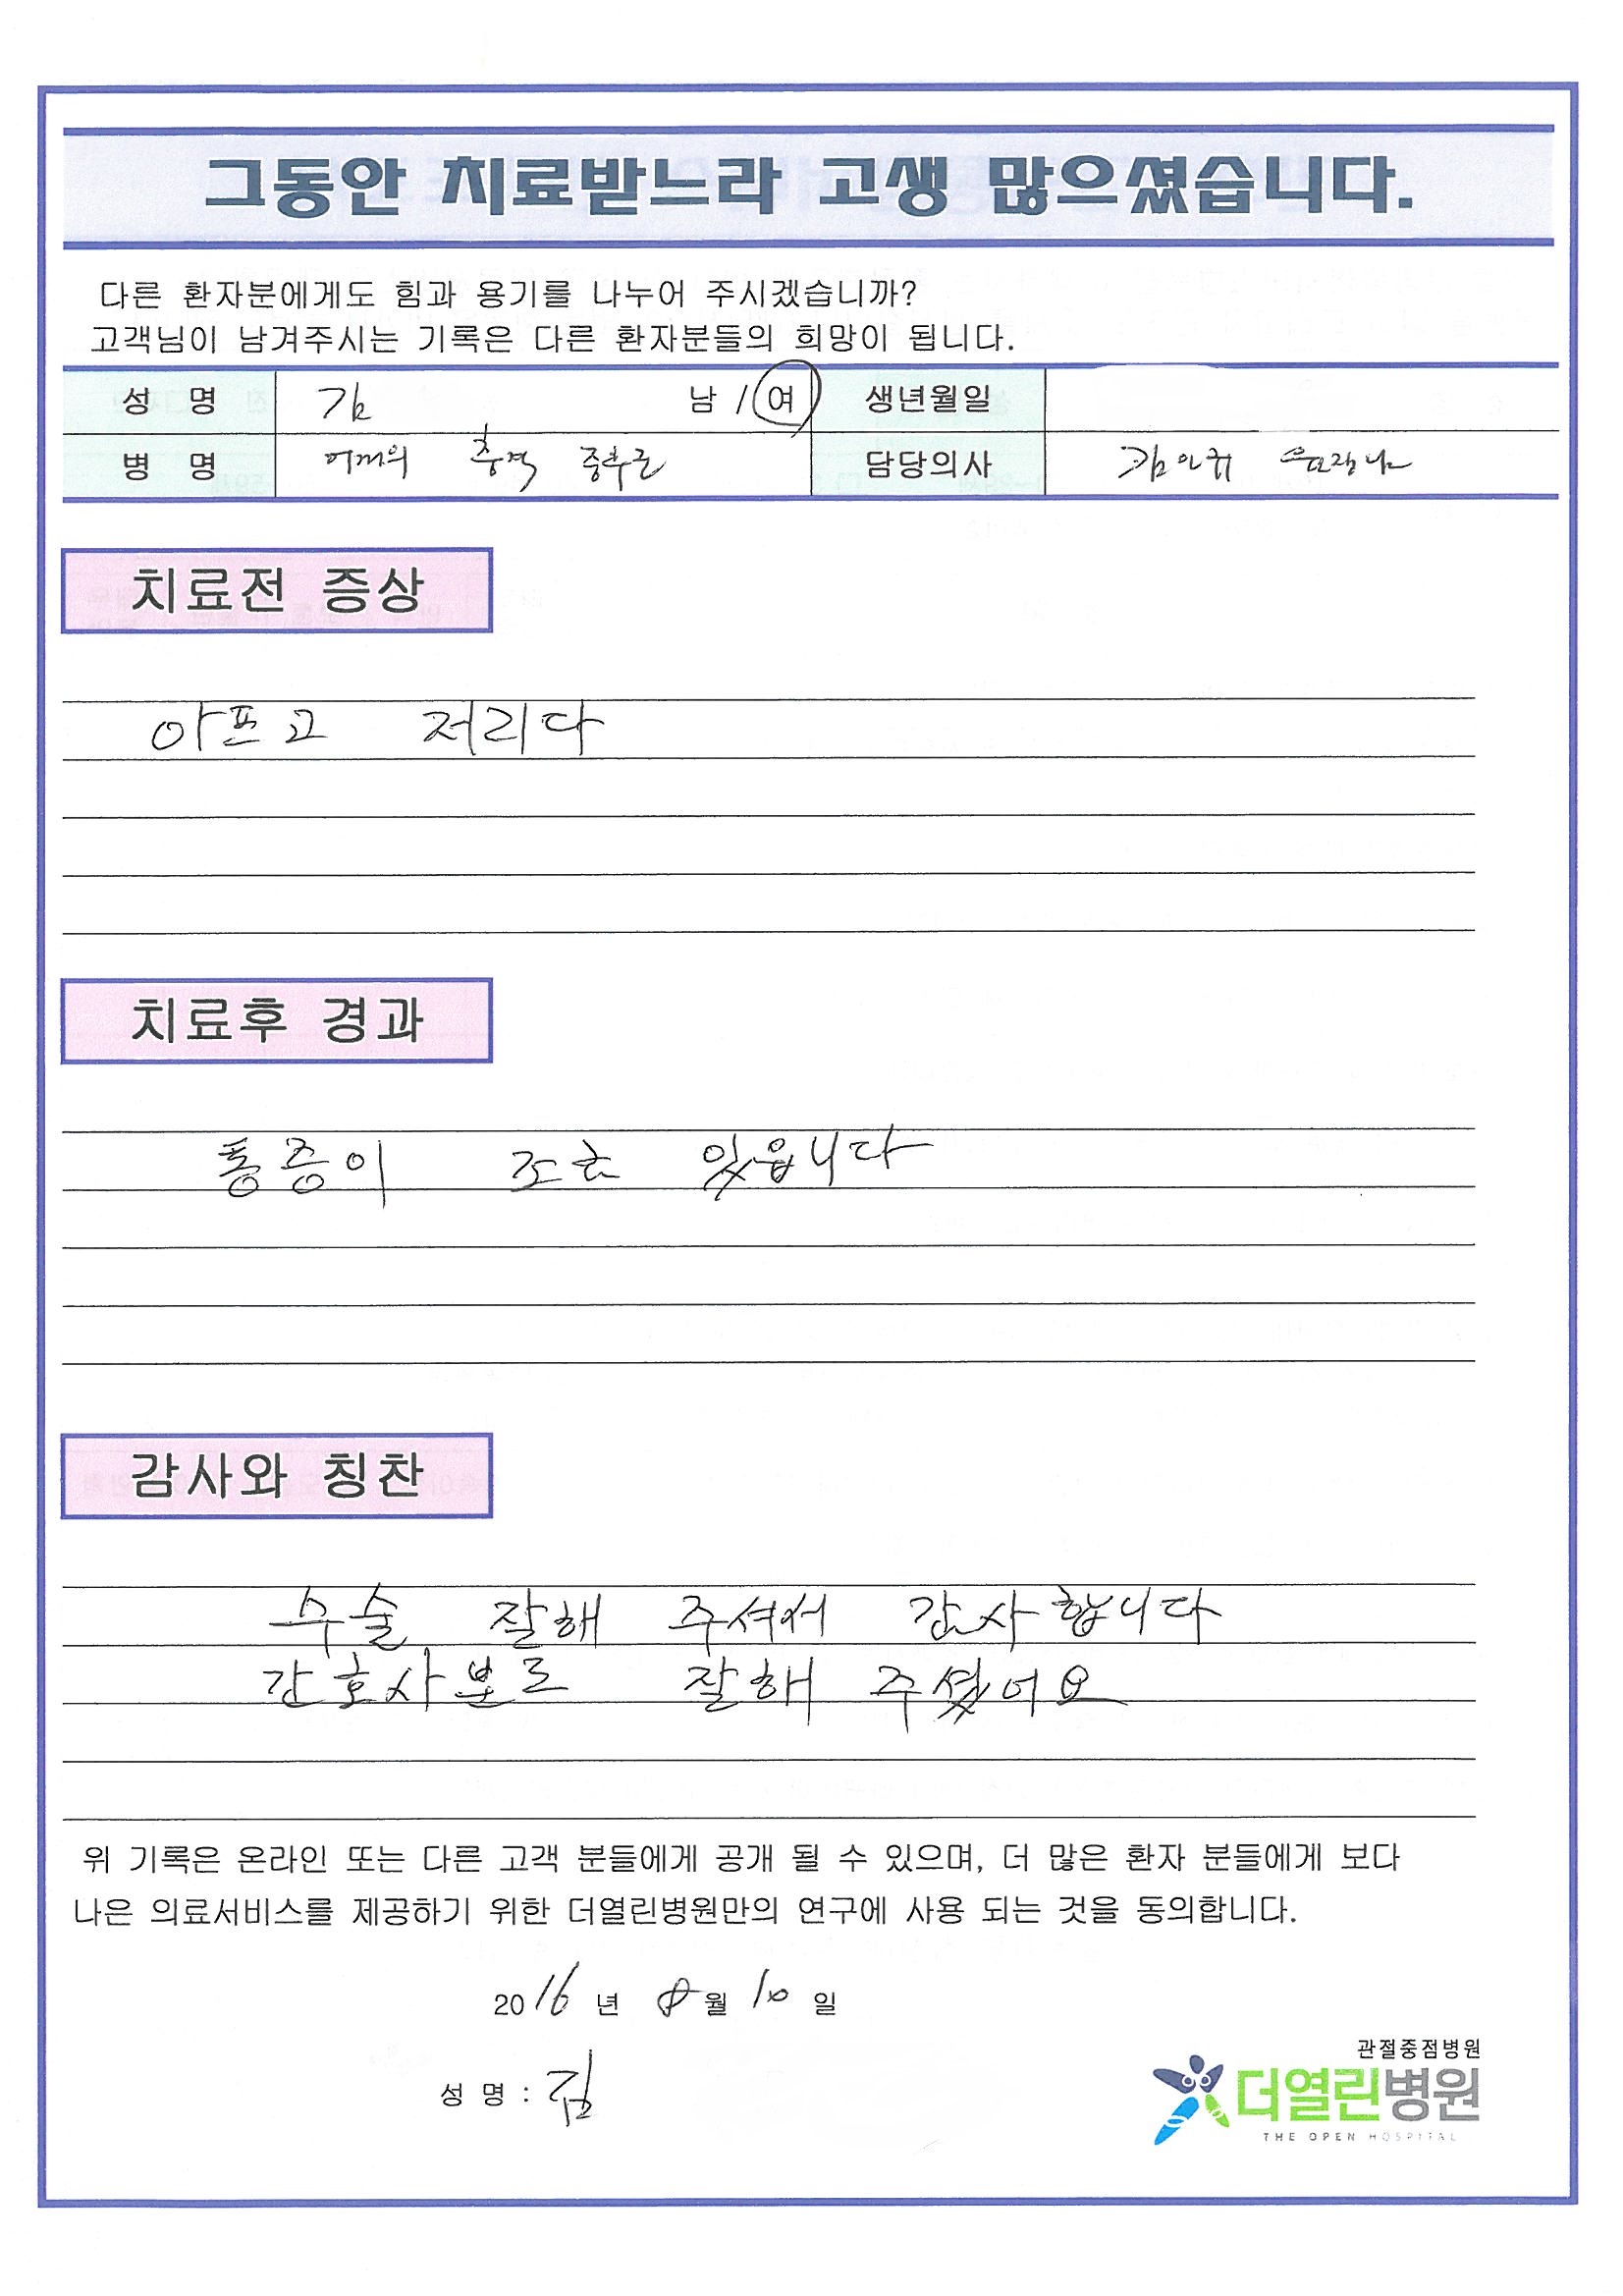 그동안 치료받느라 고생 많으셨습니다.
다른 환자분에게도 힘과 용기를 나누어 주시겠습니까?
고객님이 남겨주시는 기록은 다른 환자분들의 희망이 됩니다.
성 명 김 남 / 여 생년월일
병 명 어깨의 충격 증후군 담당의사 김인귀 원장님
치료전 증상
아프고 저리다
치료후 경과
통증이 조금 있읍니다
감사와 칭찬
수술 잘해 주셔서 감사합니다
간호사분도 잘해 주셨어요
위 기록은 온라인 또는 다른 고객 분들에게 공개 될 수 있으며, 더 많은 환자 분들에게 보다
나은 의료서비스를 제공하기 위한 더열린병원만의 연구에 사용 되는 것을 동의합니다.
2016 년 8 월 10 일
성 명 : 김
관절중점병원
더열린병원
THE OPEN HOSPITAL